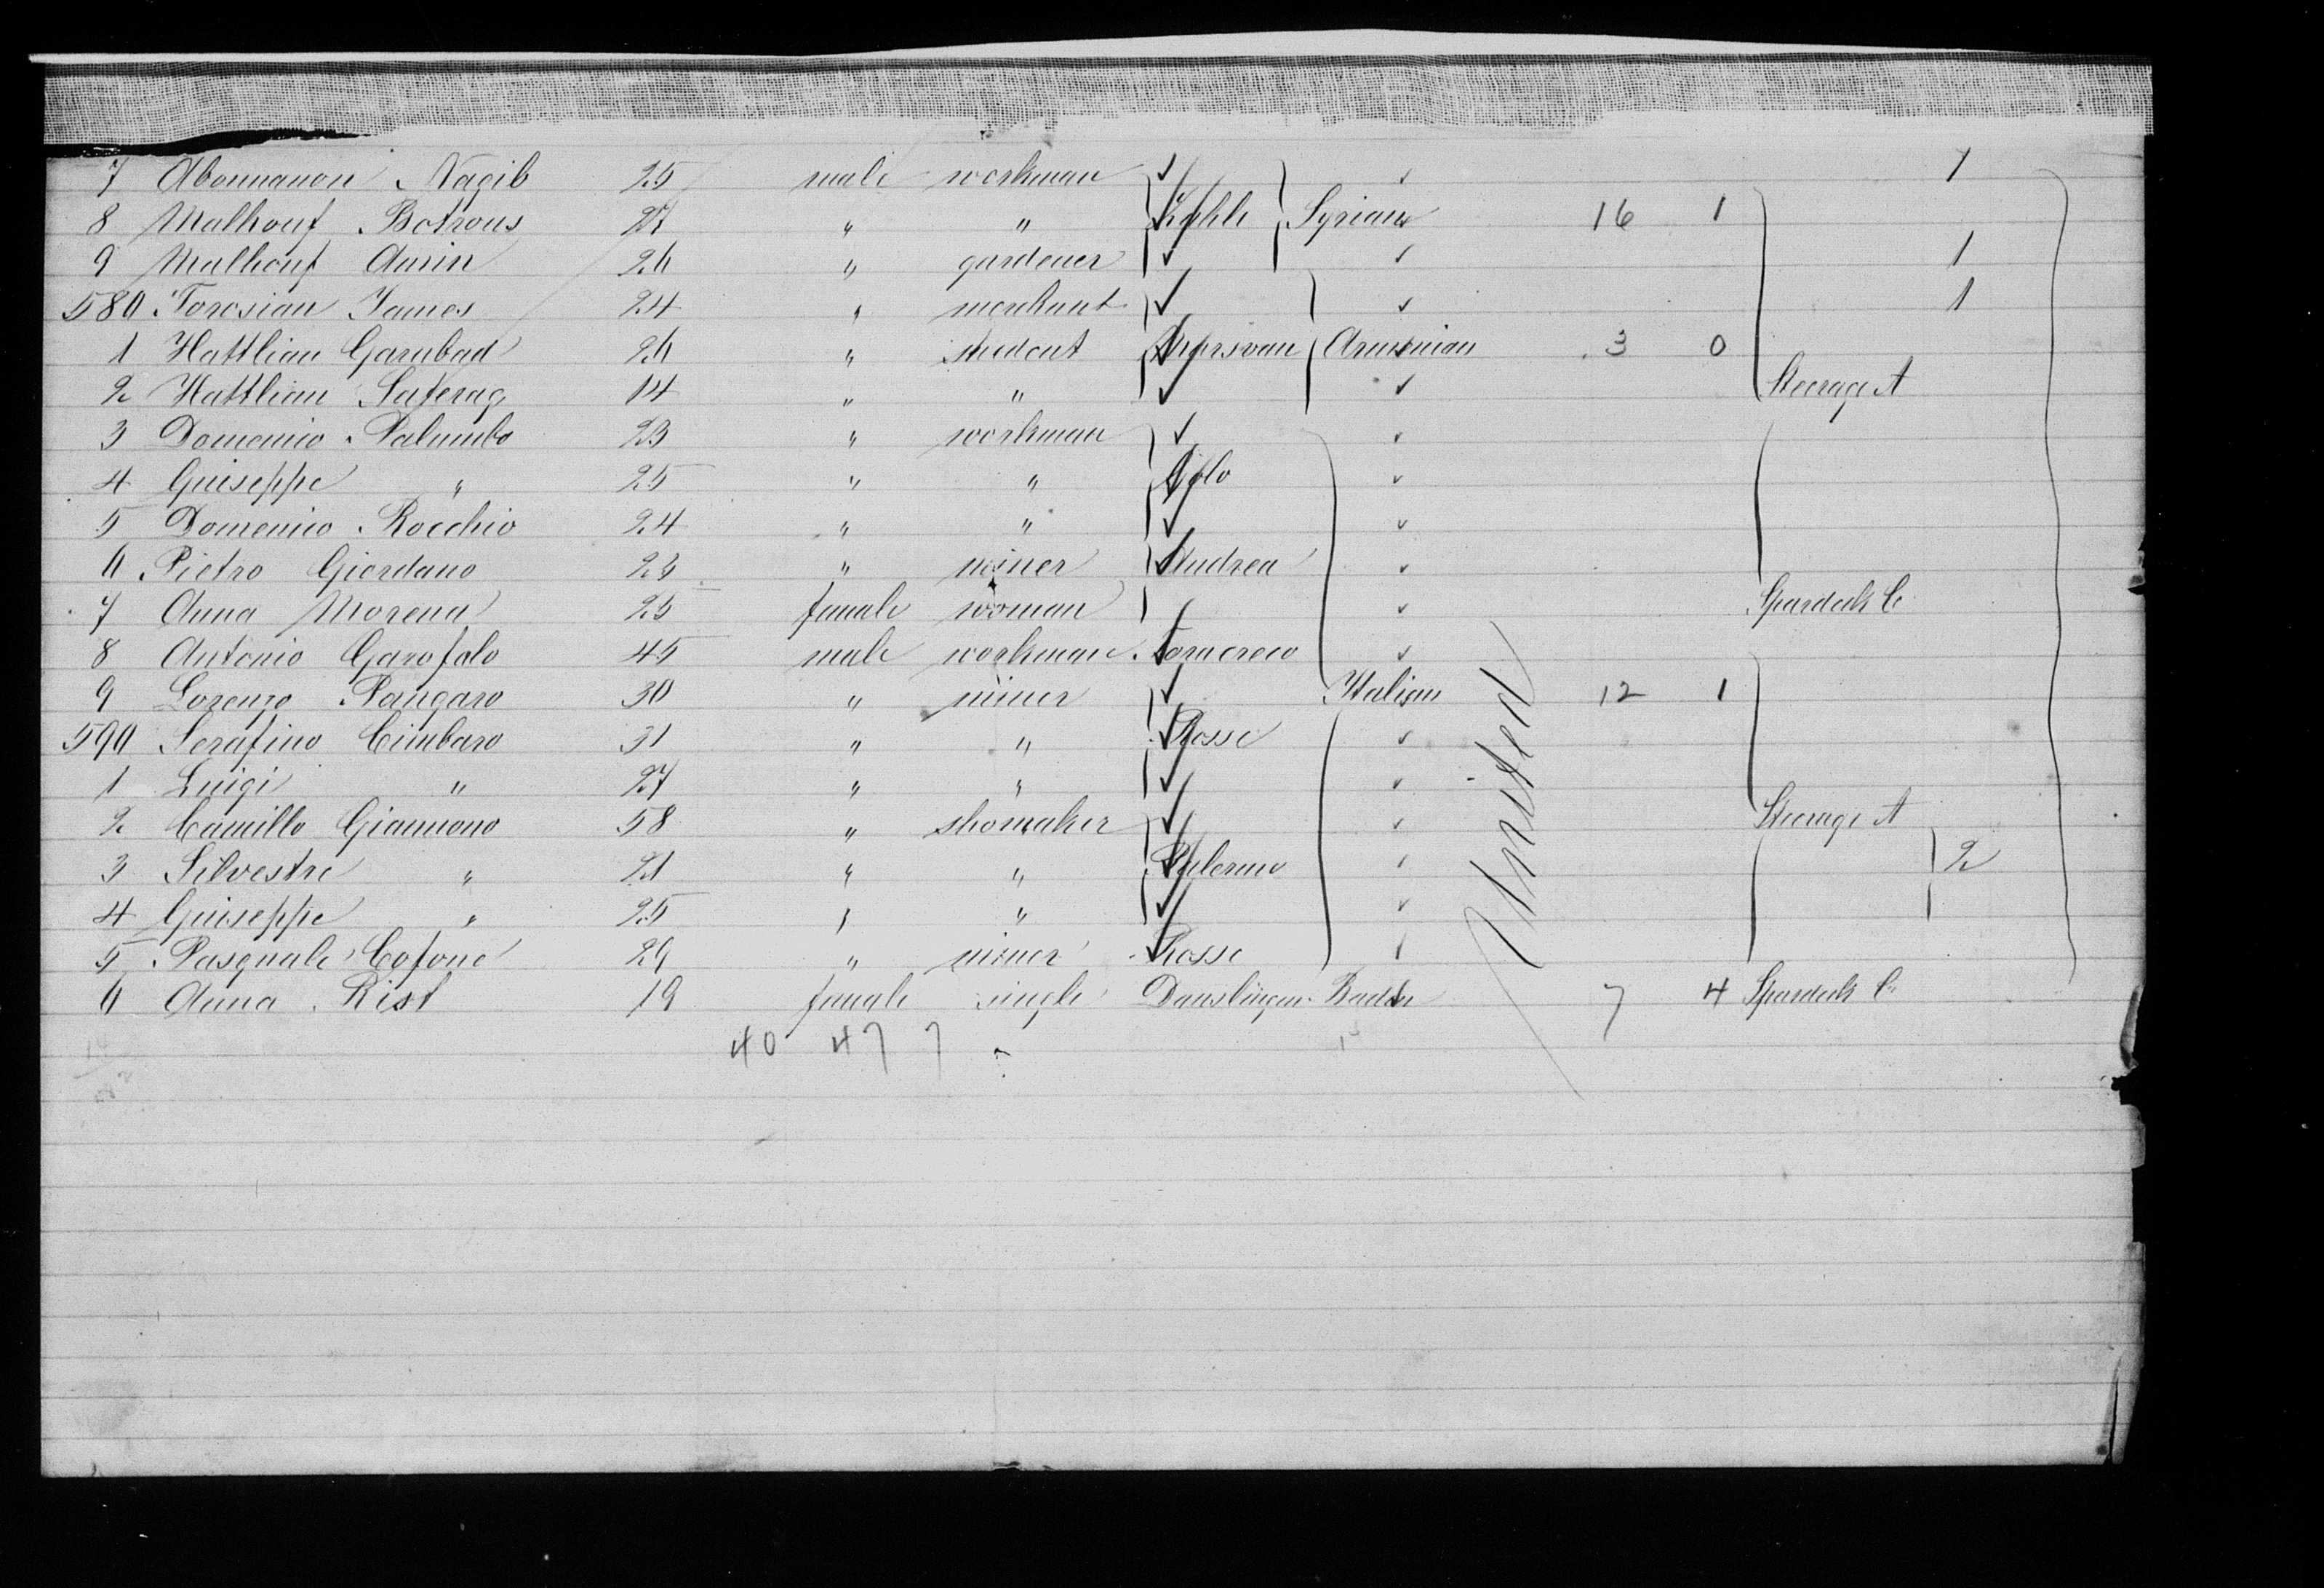 7 Abounanon Nagib 25 male workman 1
8 Malhouf Botrous 27 " " Zahle Syrian 16 1
9 Malhouf Amin 26 " gardener 1
580 Torosian James 24 " merchant 1
1 Hattlian Garabad 26 " student Mersivan Armenian 3 0
2 Hattlian 14 " " Steerage A
3 Domenico Palumbo 23 " workman
4 Guiseppe " 25 " "
5 Domenico Rocchio 24 " "
6 Pietro Giordano 25 " miner Andrea
7 Anna Morena 25 female woman Spardeck C.
8 Antonio Garofalo 45 male workman
9 Lorenzo Pangaro 30 " miner Italian 12 1
590 Serafino Cimbaro 31 " " Rosse
1 Luigi " 27 " "
2 Camillo Giammono 58 " shomaker Steerage A
3 Silvestre " 21 " " Palermo 2
4 Guiseppe " 25 " "
5 Pasquale Cofone 29 " miner Rosse
6 Anna Rist 19 female single Baden 7 4 Spardeck C.
40 47 7
United